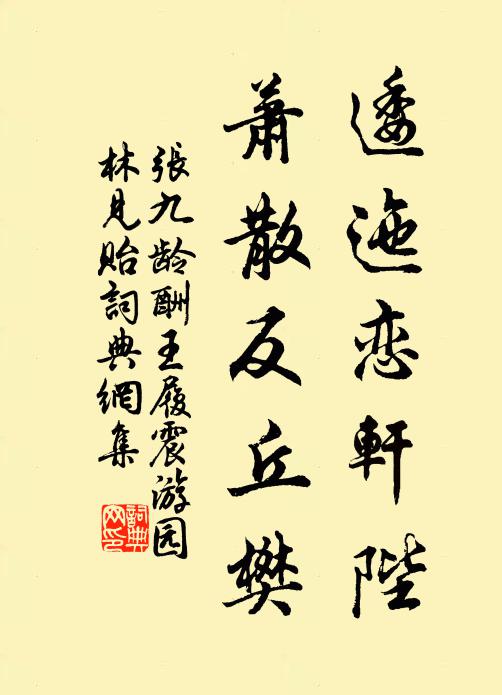 逶迤恋軒陛
蕭散反丘樊
張九龄酬王履震游园
林見貽詞典網集
詞典
网印